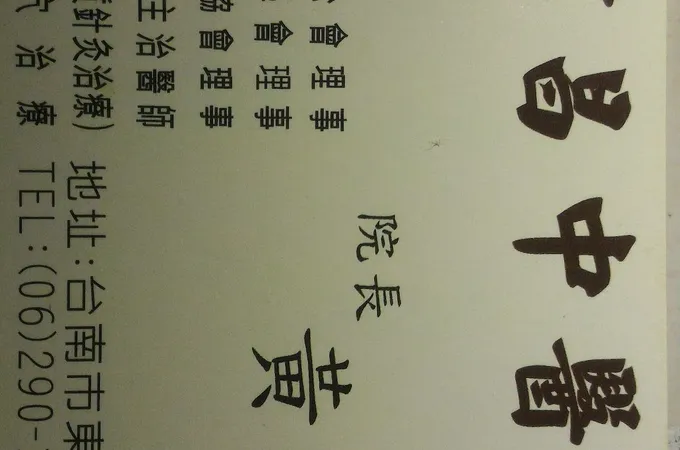 昌中醫
院長
黃
會理事
會理事
協會理事
主治醫師
針灸治療)
穴治療
地址:台南市東
TEL:(06)290-